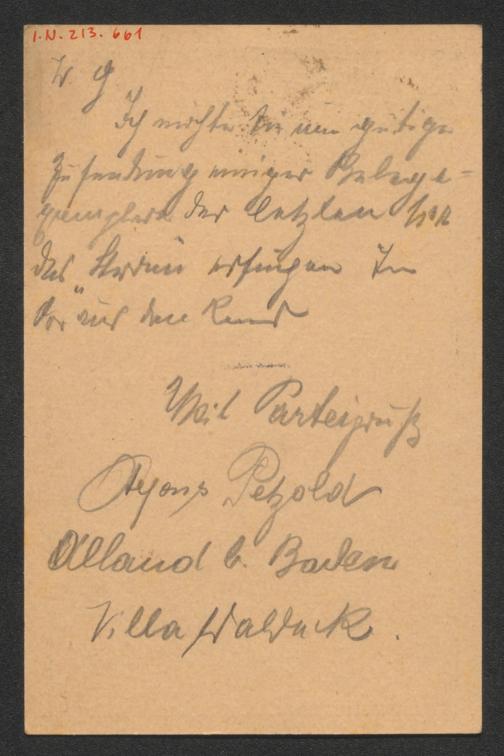 I.N. 213.661
W. G.
Ich möchte Sie um gütige
Zusendung einiger Belege-
exemplare der letzten
des Strom ersuchen
aus dem
Mit Parteigruß
Alfons Petzold
Alland b. Baden
Villa Waldeck.